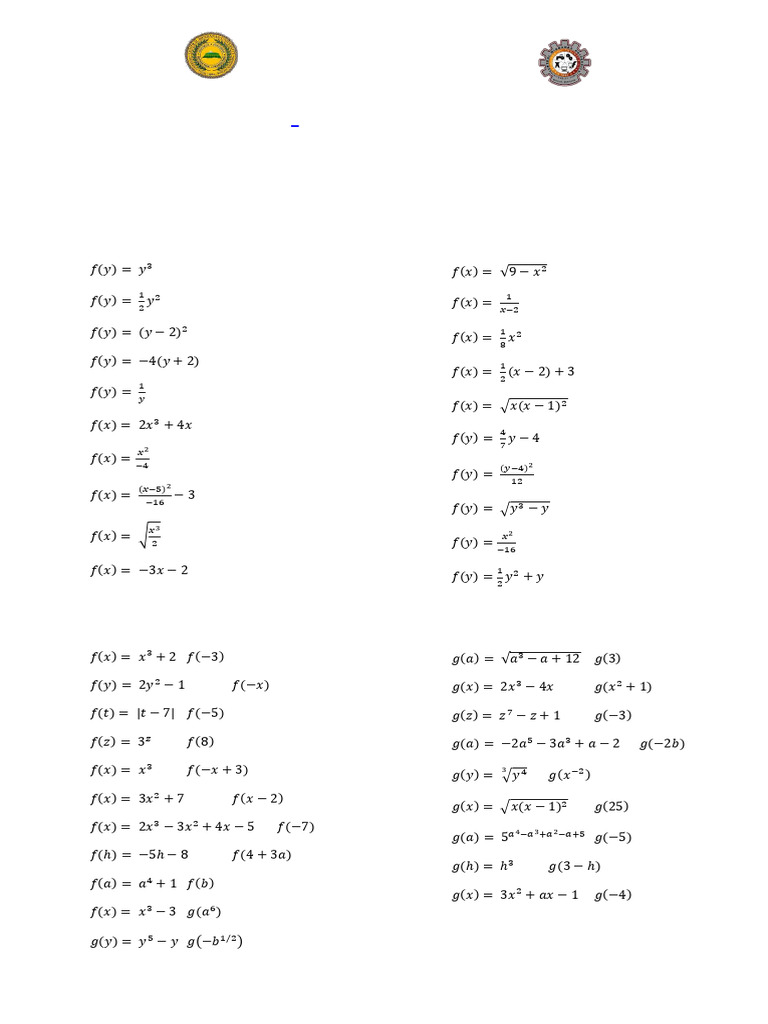 f(y) = y³
f(y) = 1/2 y²
f(y) = (y − 2)²
f(y) = −4(y + 2)
f(y) = 1/y
f(x) = 2x³ + 4x
f(x) = x²/−4
f(x) = (x−5)²/−16 − 3
f(x) = √(x³/2)
f(x) = −3x − 2
f(x) = √(9 − x²)
f(x) = 1/(x−2)
f(x) = 1/8 x²
f(x) = 1/2 (x − 2) + 3
f(x) = √(x(x − 1)²)
f(y) = 4/7 y − 4
f(y) = (y−4)²/12
f(y) = √(y³ − y)
f(y) = x²/−16
f(y) = 1/2 y² + y
f(x) = x³ + 2 f(−3)
f(y) = 2y² − 1 f(−x)
f(t) = |t − 7| f(−5)
f(z) = 3ᶻ f(8)
f(x) = x³ f(−x + 3)
f(x) = 3x² + 7 f(x − 2)
f(x) = 2x³ − 3x² + 4x − 5 f(−7)
f(h) = −5h − 8 f(4 + 3a)
f(a) = a⁴ + 1 f(b)
f(x) = x³ − 3 g(a⁶)
g(y) = y⁵ − y g(−b^1/2)
g(a) = √(a³ − a + 12) g(3)
g(x) = 2x³ − 4x g(x² + 1)
g(z) = z⁷ − z + 1 g(−3)
g(a) = −2a⁵ − 3a³ + a − 2 g(−2b)
g(y) = ∛(y⁴) g(x⁻²)
g(x) = √(x(x − 1)²) g(25)
g(a) = 5^(a⁴−a³+a²−a+5) g(−5)
g(h) = h³ g(3 − h)
g(x) = 3x² + ax − 1 g(−4)